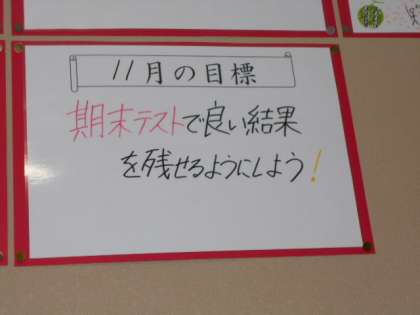 11月の目標
期末テストで良い結果
を残せるようにしよう!